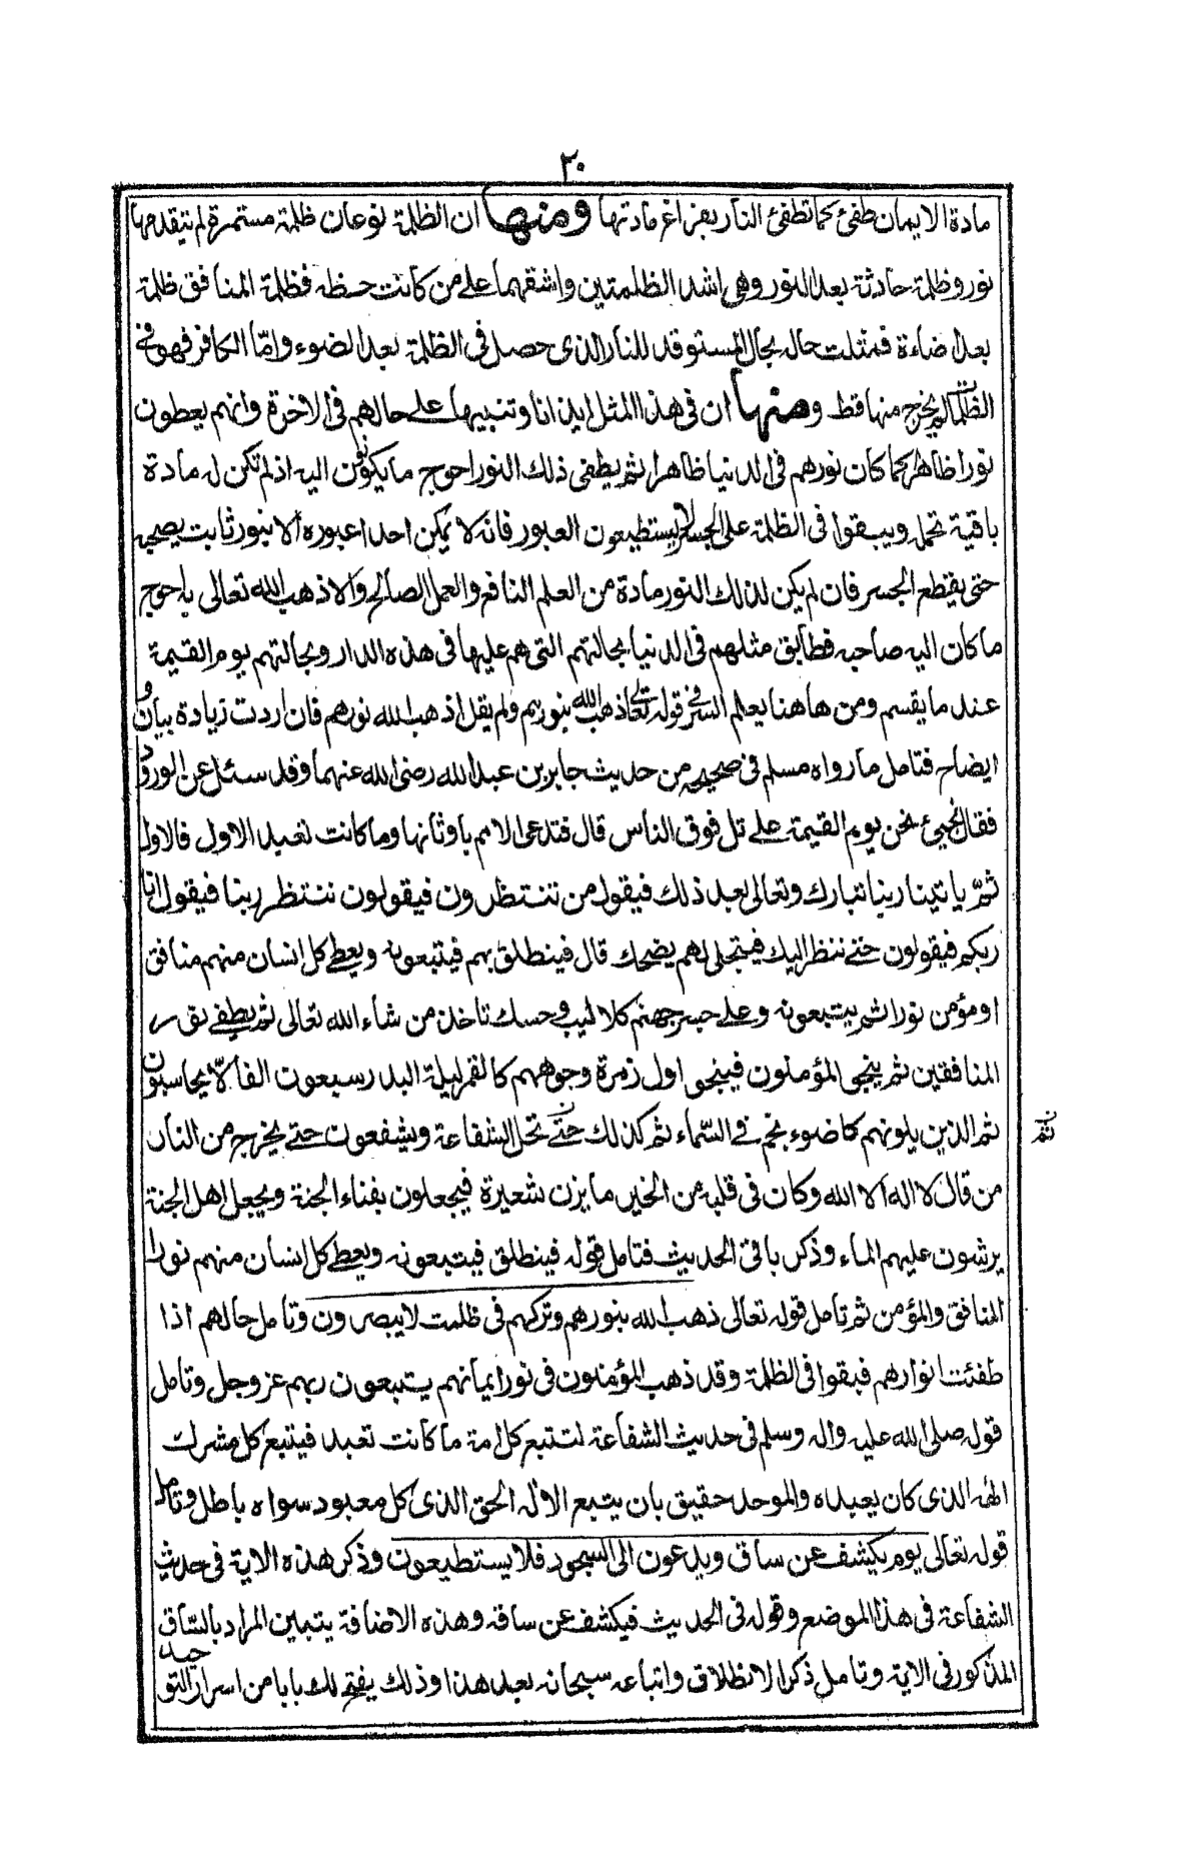 ٣٠
مادة الايمان طفئ كما تطفئ النار بفراغ مادتها ومنها ان الظلمة نوعان ظلمة مستمرة لم يتقدمها
نور وظلمة حادثة بعد النور وهى اشد الظلمتين واشقهما على من كانت حظه فظلمة المنافق ظلمة
بعد اضاءة فمثلت حاله بحال المستوقد للنار الذى حصل فى الظلمة بعد الضوء وامّا الكافر فهو فى
الظلمات لم يخرج منها قط ومنها ان فى هذا المثل ايذانا وتنبيها على حالهم فى الاخرة وانهم يعطون
نورا ظاهرا كما كان نورهم فى الدنيا ظاهرا ثم يطفى ذلك النور احوج ما يكونون اليه اذ لم تكن له مادة
باقية تحمله ويبقوا فى الظلمة على الجسر لا يستطيعون العبور فانه لا يمكن احدا عبوره الا بنور ثابت يصحبه
حتى يقطع الجسر فان لم يكن لذلك النور مادة من العلم النافع والعمل الصالح والا ذهب الله تعالى به احوج
ما كان اليه صاحبه فطابق مثلهم فى الدنيا بحالتهم التى هم عليها فى هذه الدار وبحالتهم يوم القيمة
عند ما يقسم ومن هاهنا يعلم السر فى قوله تعالى ذهب الله بنورهم ولم يقل اذهب الله نورهم فان اردت زيادة بيان و
ايضاح فتامل ما رواه مسلم فى صحيحه من حديث جابر بن عبد الله رضى الله عنهما وقد سئل عن الورود
فقال نجيئ نحن يوم القيمة على تل فوق الناس قال فتدعى الامم باوثانها وما كانت تعبد الاول فالاول
ثمّ ياتينا ربنا تبارك وتعالى بعد ذلك فيقول من تنتظرون فيقولون ننتظر ربنا فيقول انا
ربكم فيقولون حتى ننظر اليك فيتجلى لهم يضحك قال فينطلق بهم فيتبعونه ويعطى كل انسان منهم منافق
او مؤمن نورا ثم يتبعونه وعلى جسر جهنم كلاليب وحسك تاخذ من شاء الله تعالى ثم يطفى نور
المنافقين ثم ينجى المؤمنون فينجو اول زمرة وجوههم كالقمر ليلة البدر سبعون الفا لا يحاسبون
ثم الذين يلونهم كاضوء نجم فى السّماء ثم كذلك حتى تحل الشفاعة ويشفعون حتى يخرج من النار
ثم
من قال لا اله الا الله وكان فى قلبه من الخير ما يزن شعيرة فيجعلون بفناء الجنة ويجعل اهل الجنة
يرشون عليهم الماء وذكر باقى الحديث فتامل قوله فينطلق فيتبعونه ويعطى كل انسان منهم نورا
المنافق والمؤمن ثم تامل قوله تعالى ذهب الله بنورهم وتركهم فى ظلمت لا يبصرون وتامل حالهم اذا
طفئت انوارهم فبقوا فى الظلمة وقد ذهب المؤمنون فى نور ايمانهم يتبعون ربهم عز وجل وتامل
قوله صلى الله عليه واله وسلم فى حديث الشفاعة لتتبع كل امة ما كانت تعبد فيتبع كل مشرك
الهه الذى كان يعبده والموحد حقيق بان يتبع الاله الحق الذى كل معبود سواه باطل وتامل
قوله تعالى يوم يكشف عن ساق ويدعون الى السجود فلا يستطيعون وذكر هذه الاية فى حديث
الشفاعة فى هذا الموضع وقوله فى الحديث فيكشف عن ساقه وهذه الاضافة يتبين المراد بالسّاق
المذكور فى الاية وتامل ذكر الانطلاق واتباعه سبحانه بعد هذا وذلك يفتح لك بابا من اسرار التوحيد